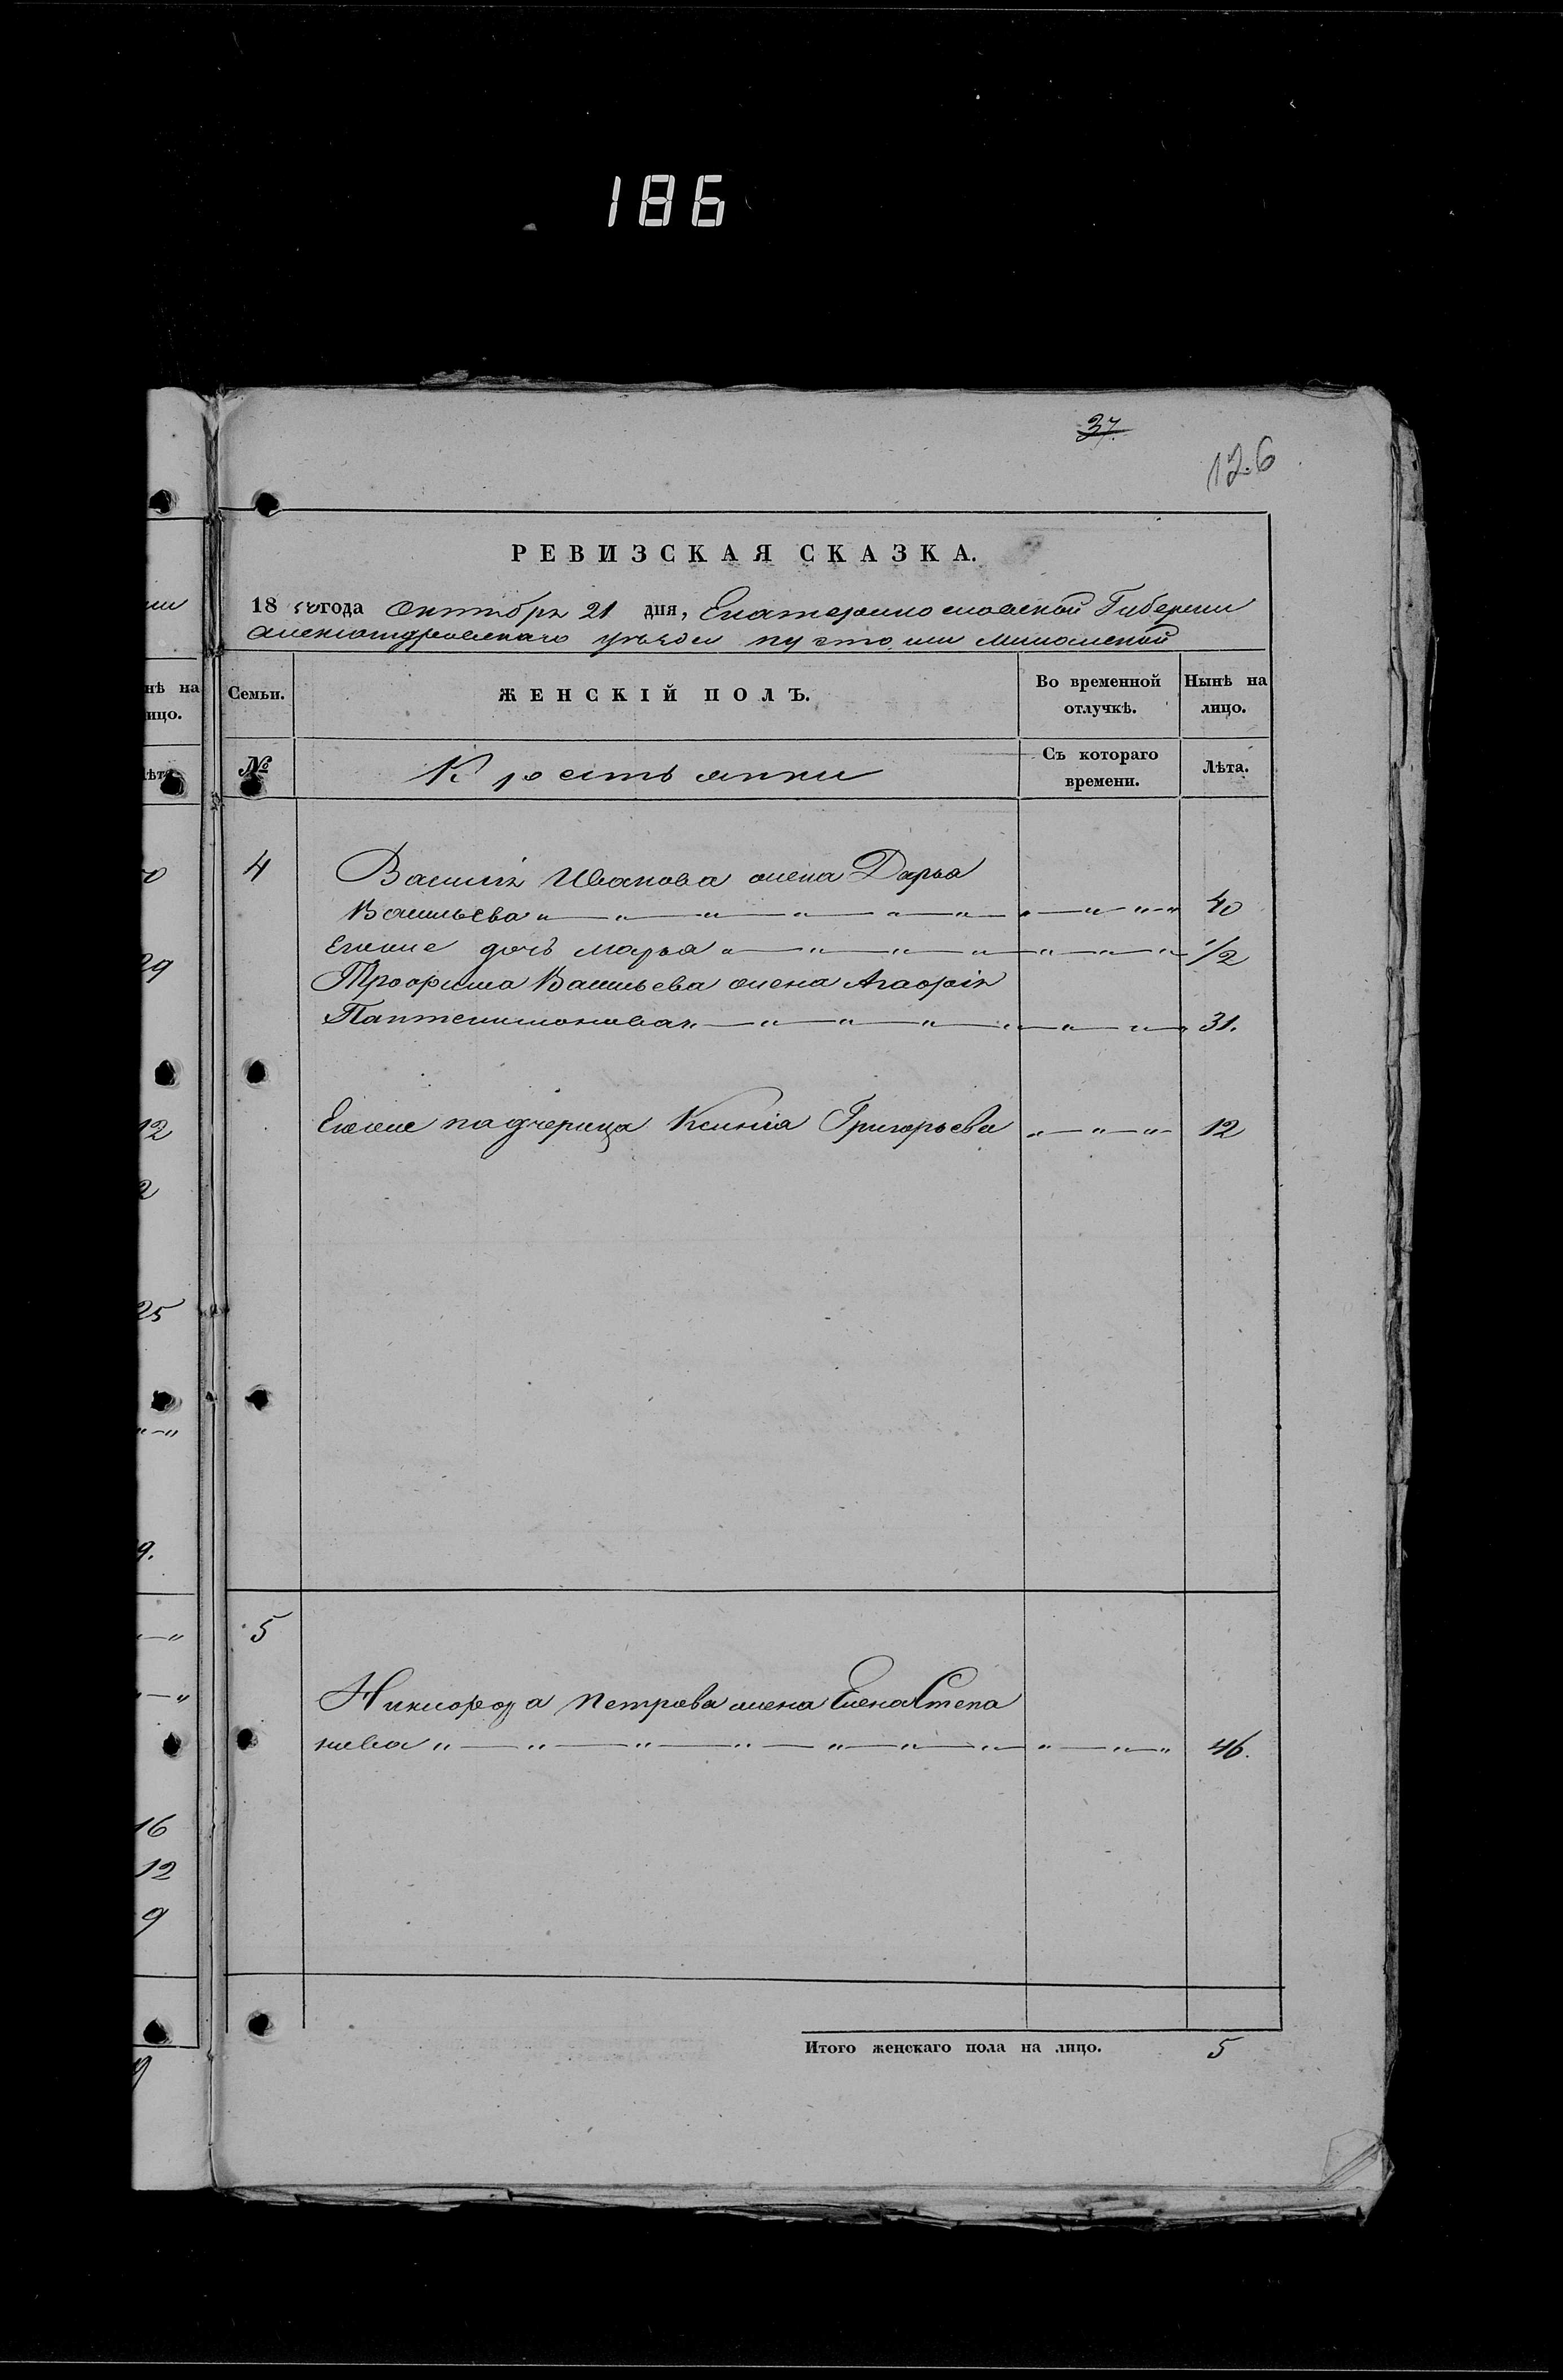 186
37.
126
РЕВИЗСКАЯ СКАЗКА.
1850 года Октября 21 дня, Екатеринославской Губернии
Александровскаго уезда пустоши
Семьи.
ЖЕНСКІЙ ПОЛЪ.
Во временной отлучкѣ.
Нынѣ на лицо.
№
Крестьянки
Съ котораго времени.
Лѣта.
4 Василія Иванова жена Дарья
Васильева " — " — " — " — " — " — " — " " — " 40
Ево же дочь Марья " — " — " — " — " — " — " 1/2
Трофима Васильева жена Агафія
Пантелимонова " — " — " — " — " — " — " — " 31.
Ево же падчерица Ксинія Григорьева " — " — " 12
5
Никифора Петрова жена Елена Степа
нова " — " — " — " — " — " — " — " — " — " 46.
Итого женскаго пола на лицо. 5
нѣ на
ицо.
ѣта
29
12
2
25
" — "
9.
— "
" — "
16
12
9